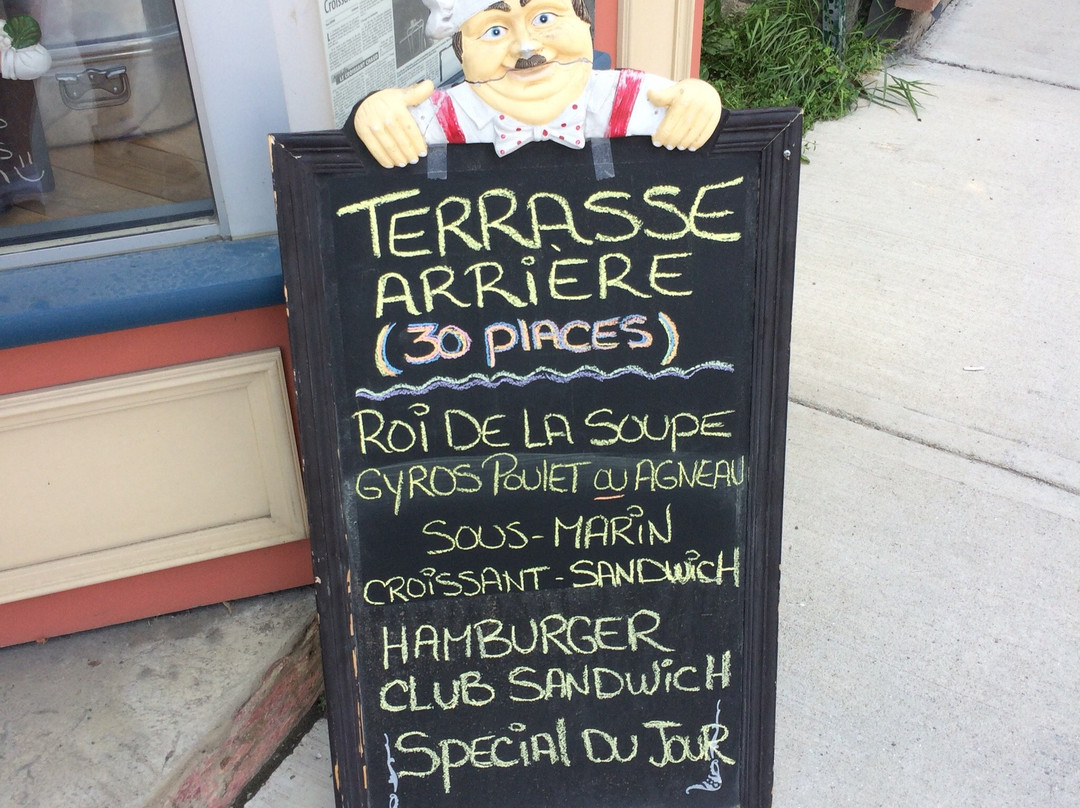 Croiss
TERRASSE
ARRIÈRE
(30 PLACES)
ROI DE LA SOUPE
GYROS POULET OU AGNEAU
SOUS-MARIN
CROISSANT-SANDWICH
HAMBURGER
CLUB SANDWICH
SPECIAL DU JOUR